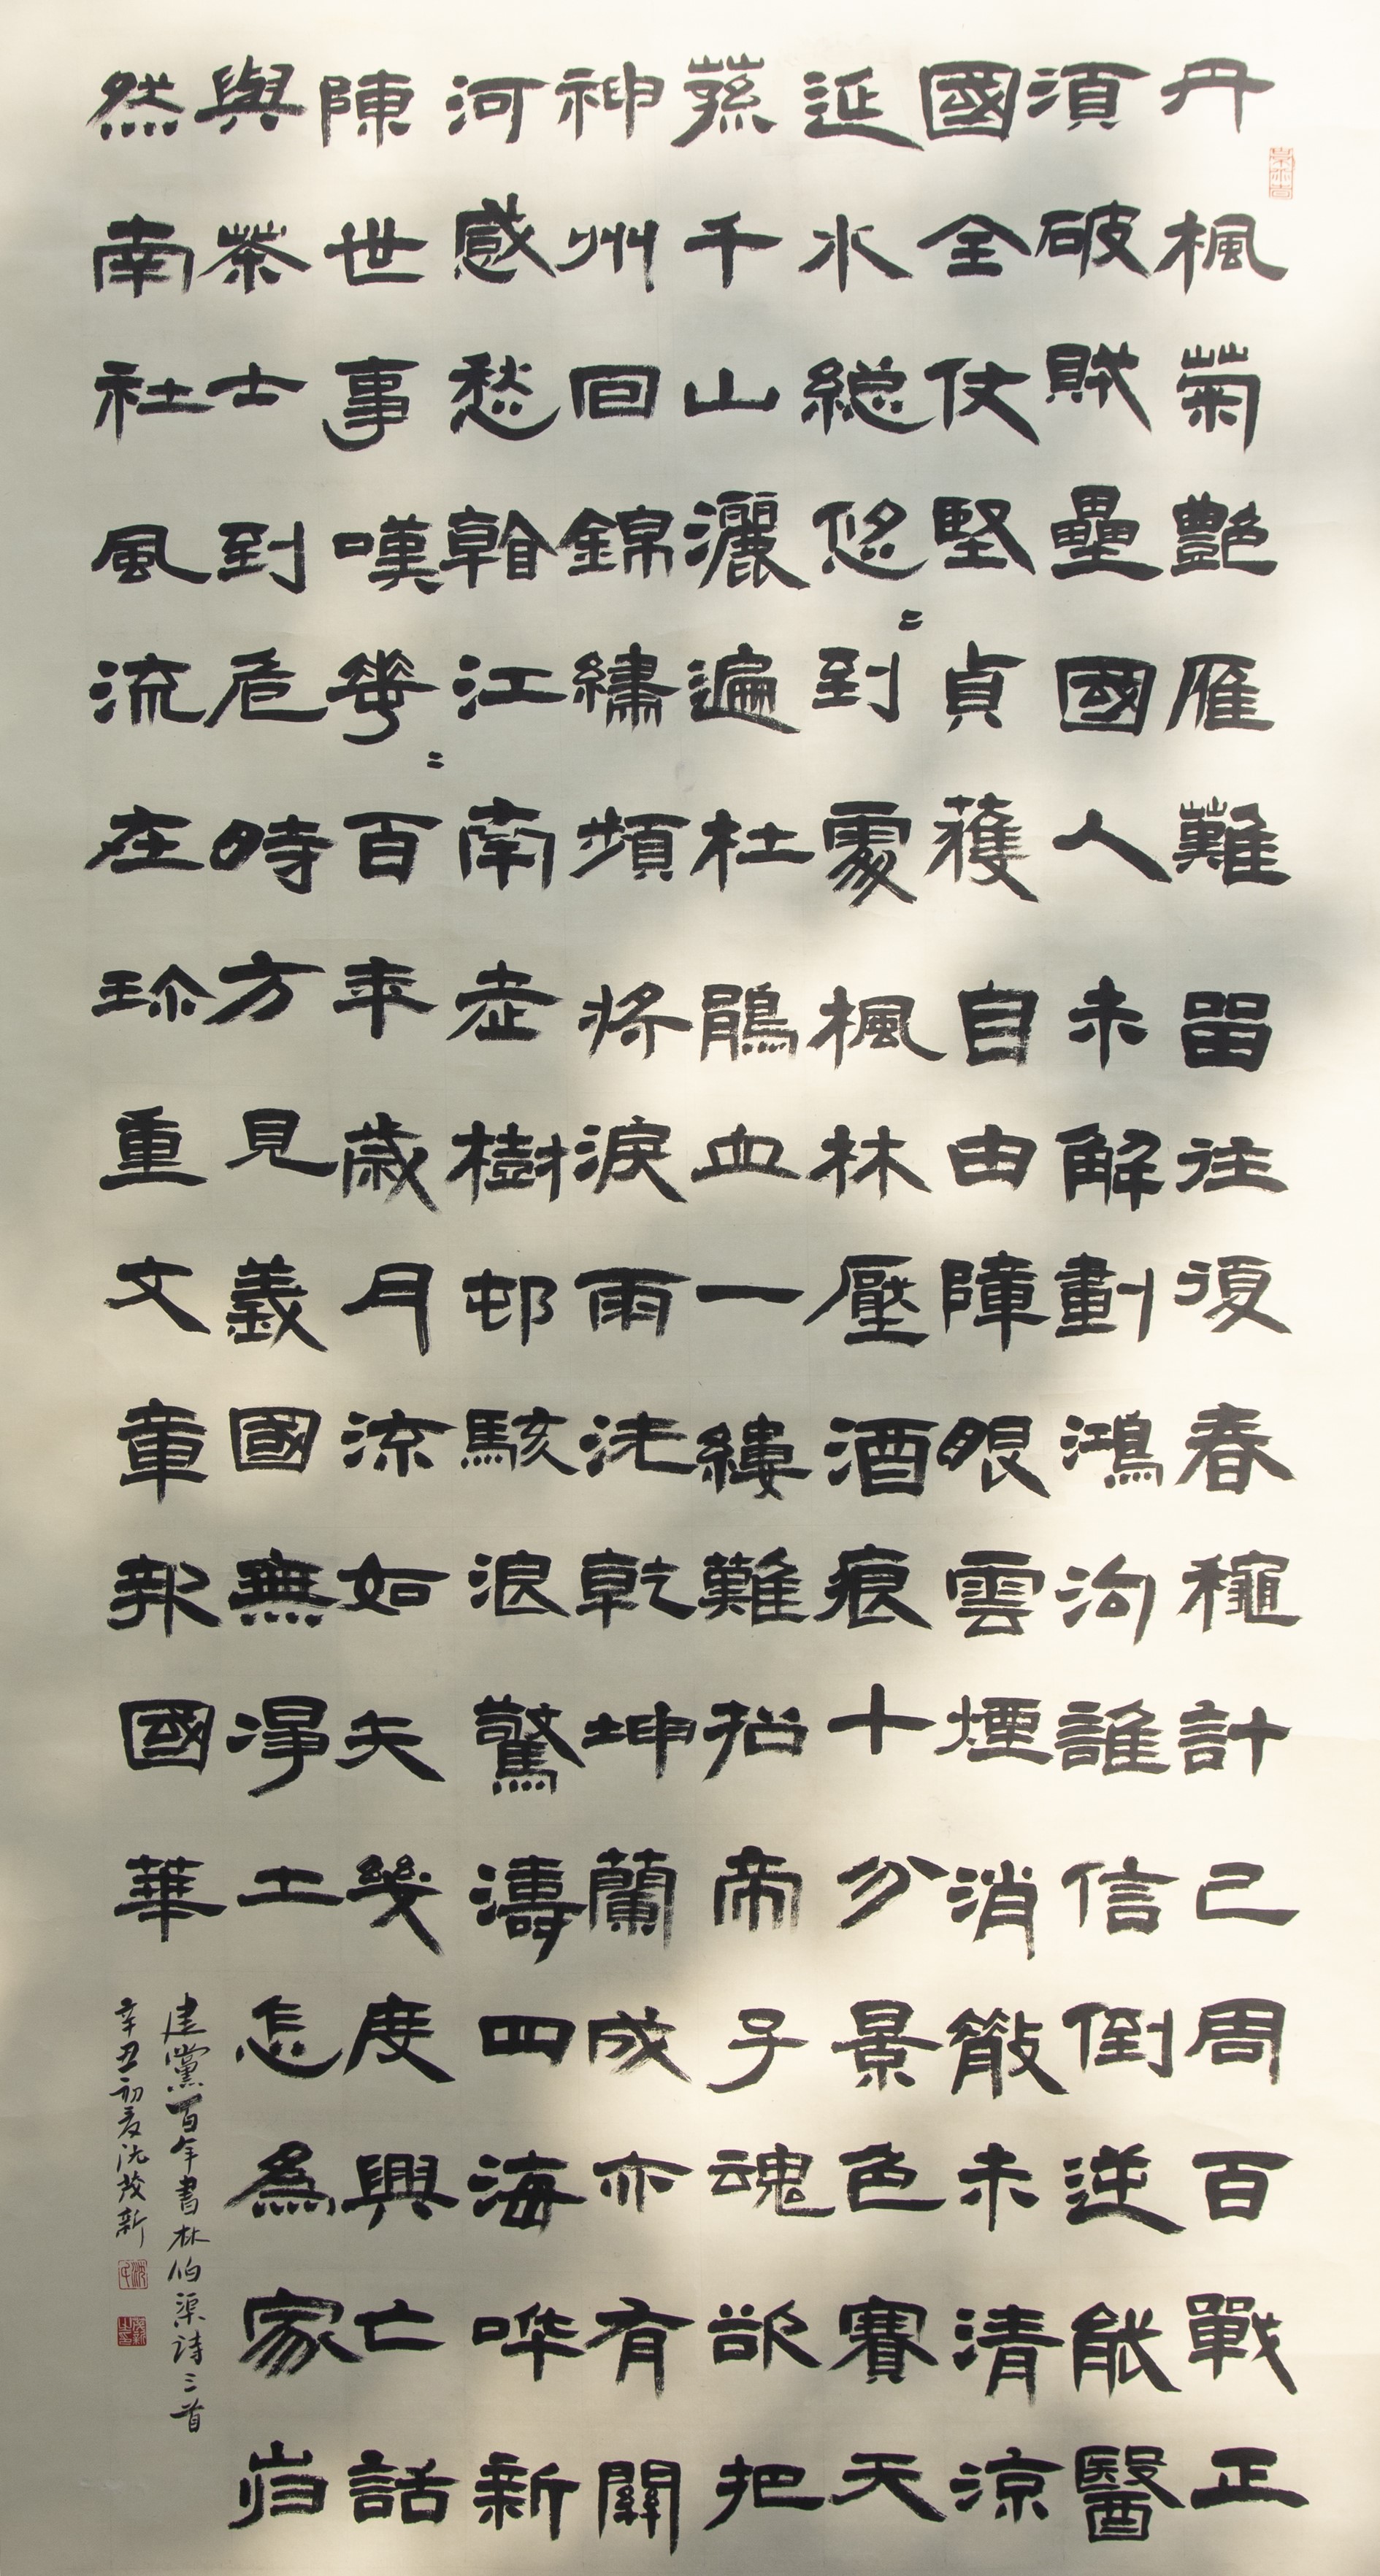 丹楓菊艷雁難留往復春穐計已周百戰正
須破賊壘國人未解劃鴻沟誰信倒逆能醫
國全仗堅貞獲自由障眼雲煙消散未清涼
延水總悠〻到處楓林壓酒痕十分景色賽天
蓀千山灑遍杜鵑血一縷難招帝子魂欲把
神州回錦繡頻將淚雨洗乾坤蘭成亦有關
河感愁看江南老樹邨駭浪驚濤四海嘩新
陳世事嘆𠌶〻百年歲月流如矢幾度興亡話
與茶士到危時方見義國無淨土怎為家巋
然南社風流在珍重文章報國華
建黨百年書林伯渠詩三首
辛丑初夏沈茂新